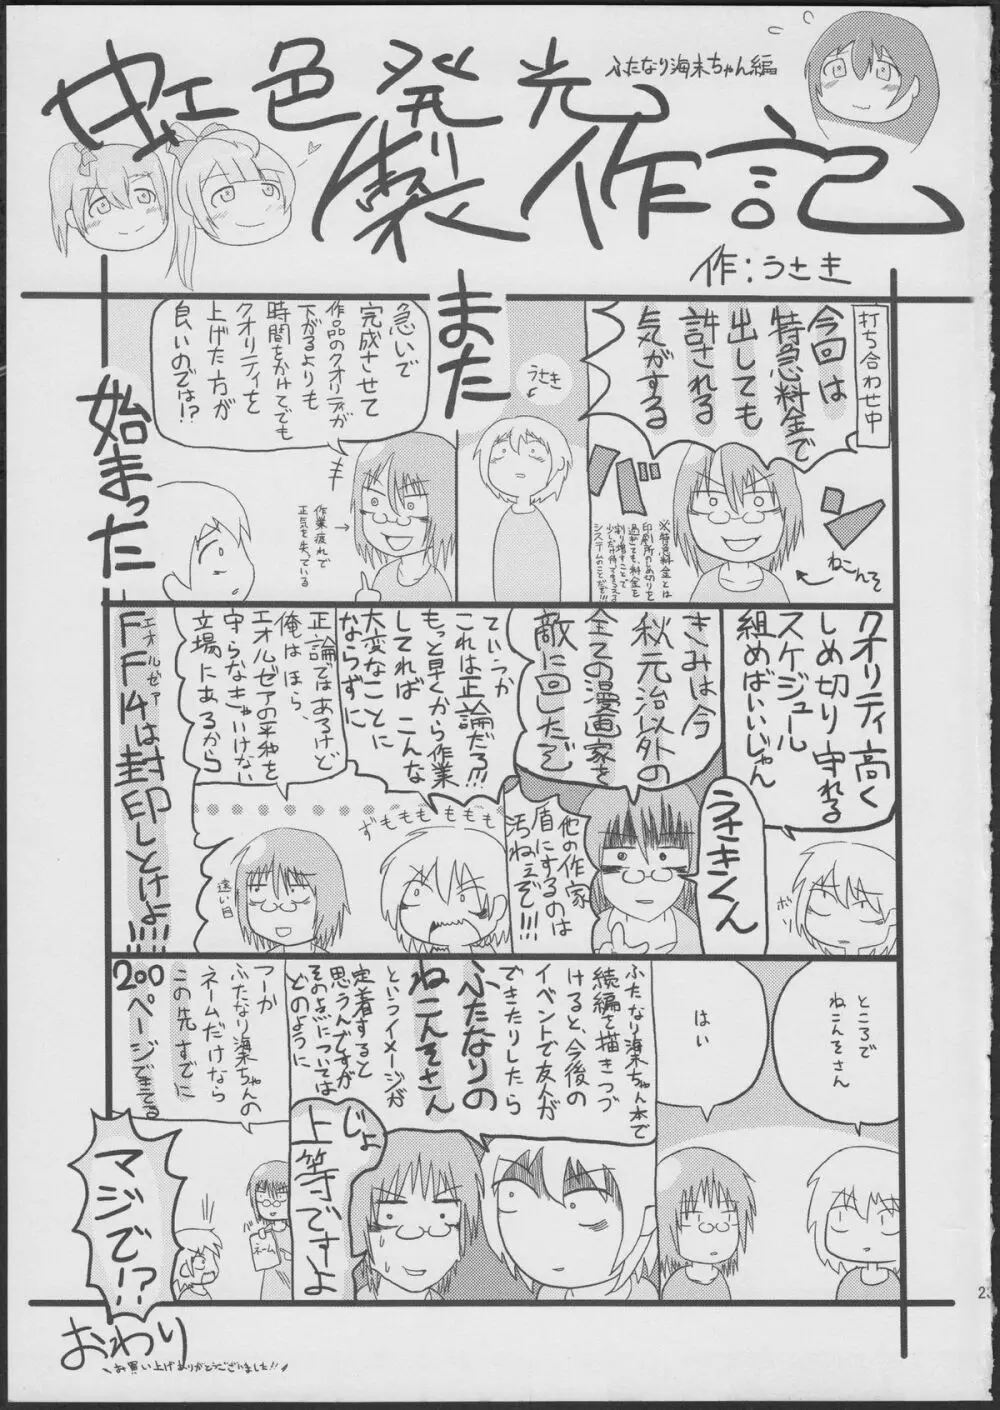 ふたなり海未ちゃん編
虹色発光
製作記
作：うさき
また
始まった
打ち合わせ中
今回は
特急料金で
出しても
許される
気がする
バ
ン
ねこんそ
※特急料金とは
印刷所のしめ切りを
過ぎても、料金を
割り増すことで
少しだけ待ってもらえる
システムのことだぞ!!!
うさき
急いで
完成させて
作品のクオリティが
下がるよりも
時間をかけてでも
クオリティを
上げた方が
良いのでは!?
作業疲れで
正気を失っている
クオリティ高く
しめ切り守れる
スケジュール
組めばいいじゃん
ボソ
うさきくん
きみは今
秋元治以外の
全ての漫画家を
敵に回したぞ
他の作家
盾にするのは
汚ねぇぞ!!!
ていうか
これは正論だろ!!!
もっと早くから作業
してれば こんな
大変なことに
ならずに
ずももももももも
正論ではあるけど
俺は ほら、
エオルゼアの平和を
守らなきゃいけない
立場にあるから
遠い目
エオルゼア
FF14は封印しとけよ!!!!
ところで
ねこんそさん
はい
ふたなり海未ちゃん本で
続編を描きつづ
けると、今後の
イベントで友人が
できたりしたら
ふたなりの
ねこんそさん
というイメージが
定着すると
思うんですが
そのよについては
どのように
じょ
上等ですよ
つーか
ふたなり海未ちゃんの
ネームだけなら
この先すでに
200ページできてる
ネーム
マジで!?
おわり
お買い上げありがとうございました!!